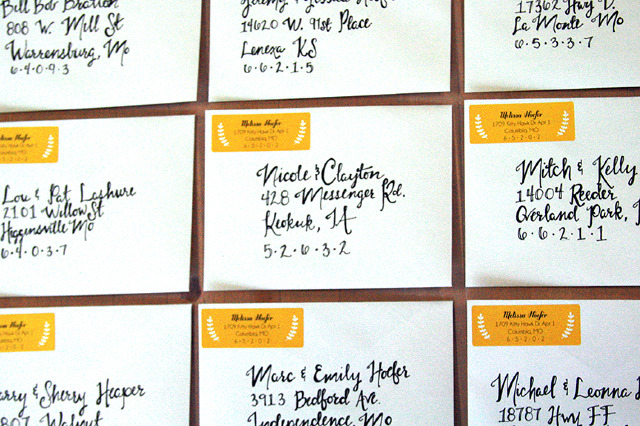 Bill Bob
808 W. Mill St
Warrensburg, Mo
6·4·0·9·3
14620 W. 91st Place
Lenexa KS
6·6·2·1·5
17362 Hwy D.
La Monte Mo
6·5·3·3·7
Lou & Pat Lashure
2101 Willow St
Higginsville Mo
6·4·0·3·7
Melissa Hoefer
1709 Kitty Hawk Dr Apt 1
Columbia, MO
6·5·2·0·2
Nicole & Clayton
428 Messenger Rd.
Keokuk, IA
5·2·6·3·2
Melissa Hoefer
1709 Kitty Hawk Dr Apt 1
Columbia, MO
6·5·2·0·2
Mitch & Kelly
14004 Reeder
Overland Park,
6·6·2·1·1
& Sherry Heaper
Walnut
Melissa Hoefer
1709 Kitty Hawk Dr Apt 1
Columbia, MO
6·5·2·0·2
Marc & Emily Hoefer
3913 Bedford Ave.
Independence, Mo
Melissa Hoefer
1709 Kitty Hawk Dr Apt 1
Columbia, MO
6·5·2·0·2
Michael & Leonna
18787 Hwy FF